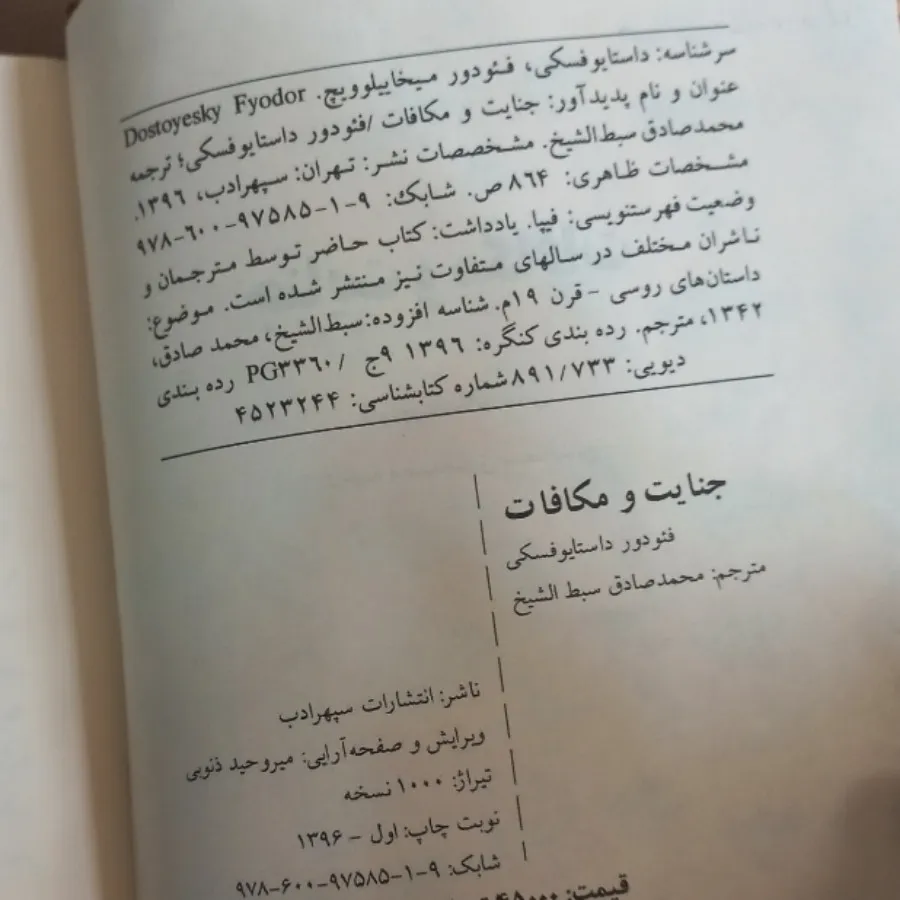 سرشناسه: داستایوفسکی، فئودور میخاییلوویچ. Dostoyesky Fyodor
عنوان و نام پدیدآور: جنایت و مکافات /فئودور داستایوفسکی؛ ترجمه
محمدصادق سبط‌الشیخ. مشخصصات نشر: تهران: سپهرادب، ۱۳۹۶.
مشخصات ظاهری: ۸۶۴ ص. شابک: ۹-۱-۹۷۵۸۵-۶۰۰-۹۷۸
وضعیت فهرستنویسی: فیپا. یادداشت: کتاب حاضر توسط مترجمان و
ناشران مختلف در سالهای متفاوت نیز منتشر شده است. موضوع:
داستان‌های روسی - قرن ۱۹م. شناسه افزوده: سبط‌الشیخ، محمد صادق،
۱۳۴۲، مترجم. رده بندی کنگره: ۱۳۹۶ ۹ج /PG۳۳۶۰ رده بندی
دیویی: ۸۹۱/۷۳۳ شماره کتابشناسی: ۴۵۲۳۲۴۴
جنایت و مکافات
فئودور داستایوفسکی
مترجم: محمدصادق سبط الشیخ
ناشر: انتشارات سپهرادب
ویرایش و صفحه‌آرایی: میروحید ذنوبی
تیراژ: ۱۰۰۰ نسخه
نوبت چاپ: اول - ۱۳۹۶
شابک: ۹-۱-۹۷۵۸۵-۶۰۰-۹۷۸
قیمت: ۴۵۰۰۰